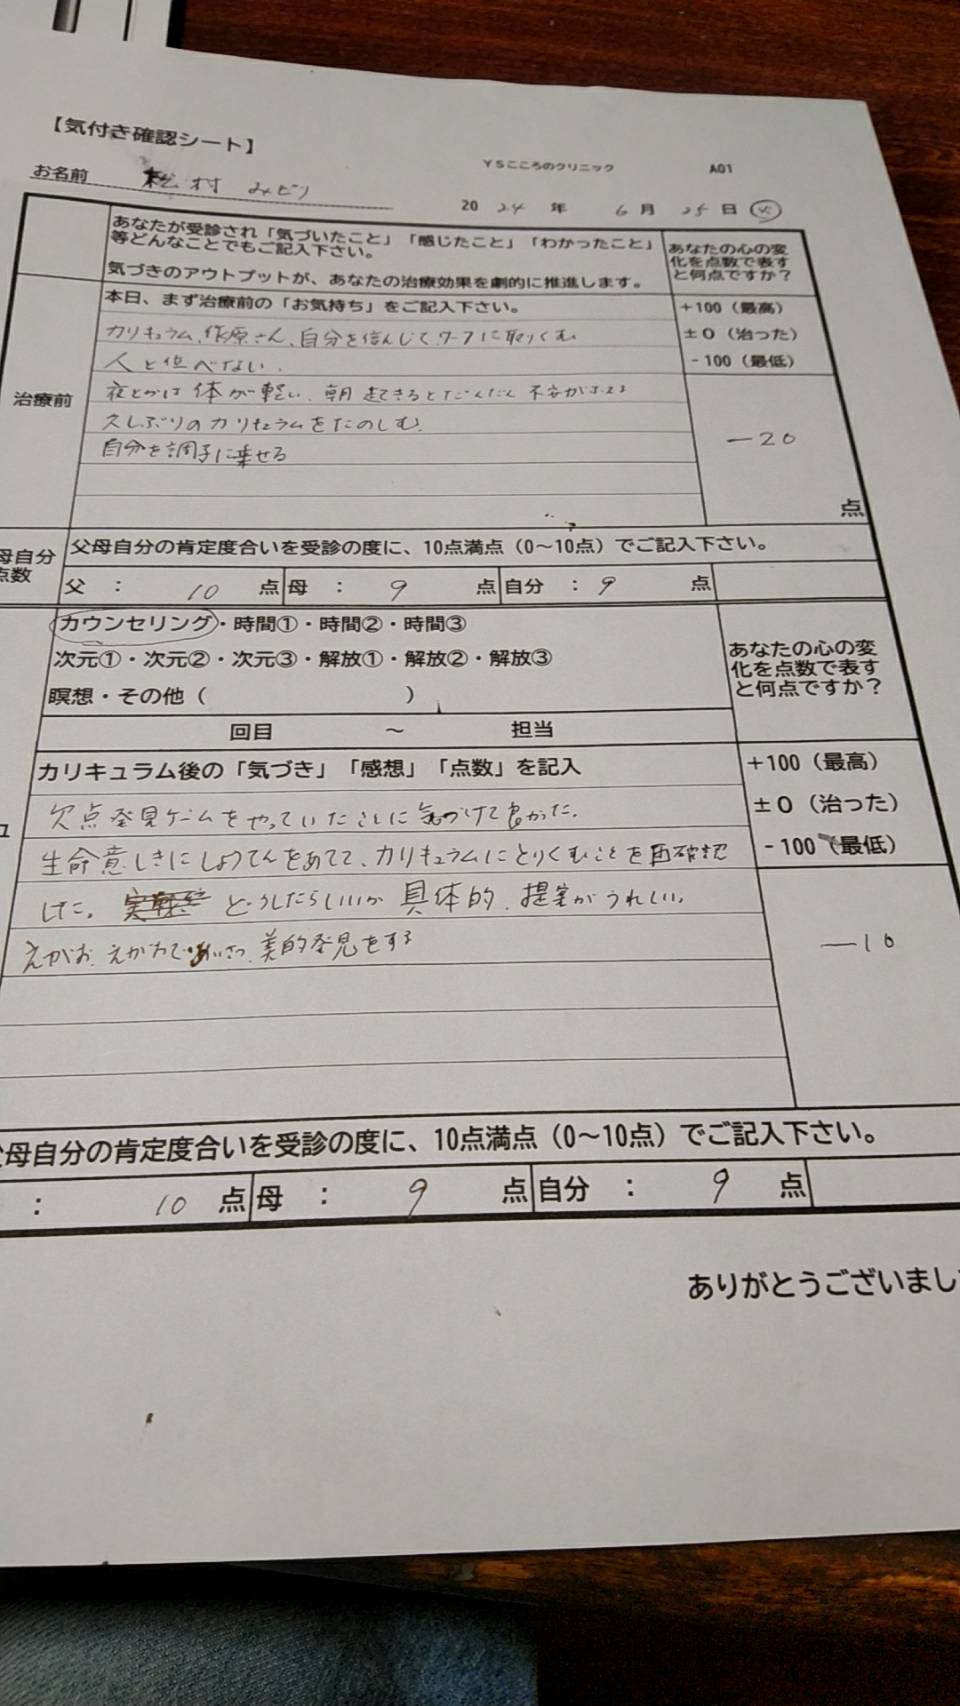 【気付き確認シート】
YSこころのクリニック A01
お名前 松村 みどり
20 24 年 6 月 25 日 (火)
あなたが受診され「気づいたこと」「感じたこと」「わかったこと」
等どんなことでもご記入下さい。
気づきのアウトプットが、あなたの治療効果を劇的に推進します。
あなたの心の変
化を点数で表す
と何点ですか？
治療前
本日、まず治療前の「お気持ち」をご記入下さい。
カリキュラム、 さん、自分を信じて、ワークに取りくむ
人と比べない。
夜とかは体が軽い、朝起きるとだんだん不安が
久しぶりのカリキュラムをたのしむ。
自分を調子に乗せる
+100（最高）
±0（治った）
-100（最低）
-20
点
母自分
点数
父母自分の肯定度合いを受診の度に、10点満点（0～10点）でご記入下さい。
父 ： 10 点 母 ： 9 点 自分 ： 9 点
カウンセリング・時間①・時間②・時間③
次元①・次元②・次元③・解放①・解放②・解放③
瞑想・その他（ ）
回目 ～ 担当
あなたの心の変
化を点数で表す
と何点ですか？
カリキュラム後の「気づき」「感想」「点数」を記入
欠点発見ゲームをやっていたことに気づけて良かった。
生命意しきにしょうてんをあてて、カリキュラムにとりくむことを再確認
した。 どうしたらいいか 具体的、提案がうれしい。
えがお、えがおであいさつ、美的発見をする
+100（最高）
±0（治った）
-100（最低）
-10
父母自分の肯定度合いを受診の度に、10点満点（0～10点）でご記入下さい。
： 10 点 母 ： 9 点 自分 ： 9 点
ありがとうございまし